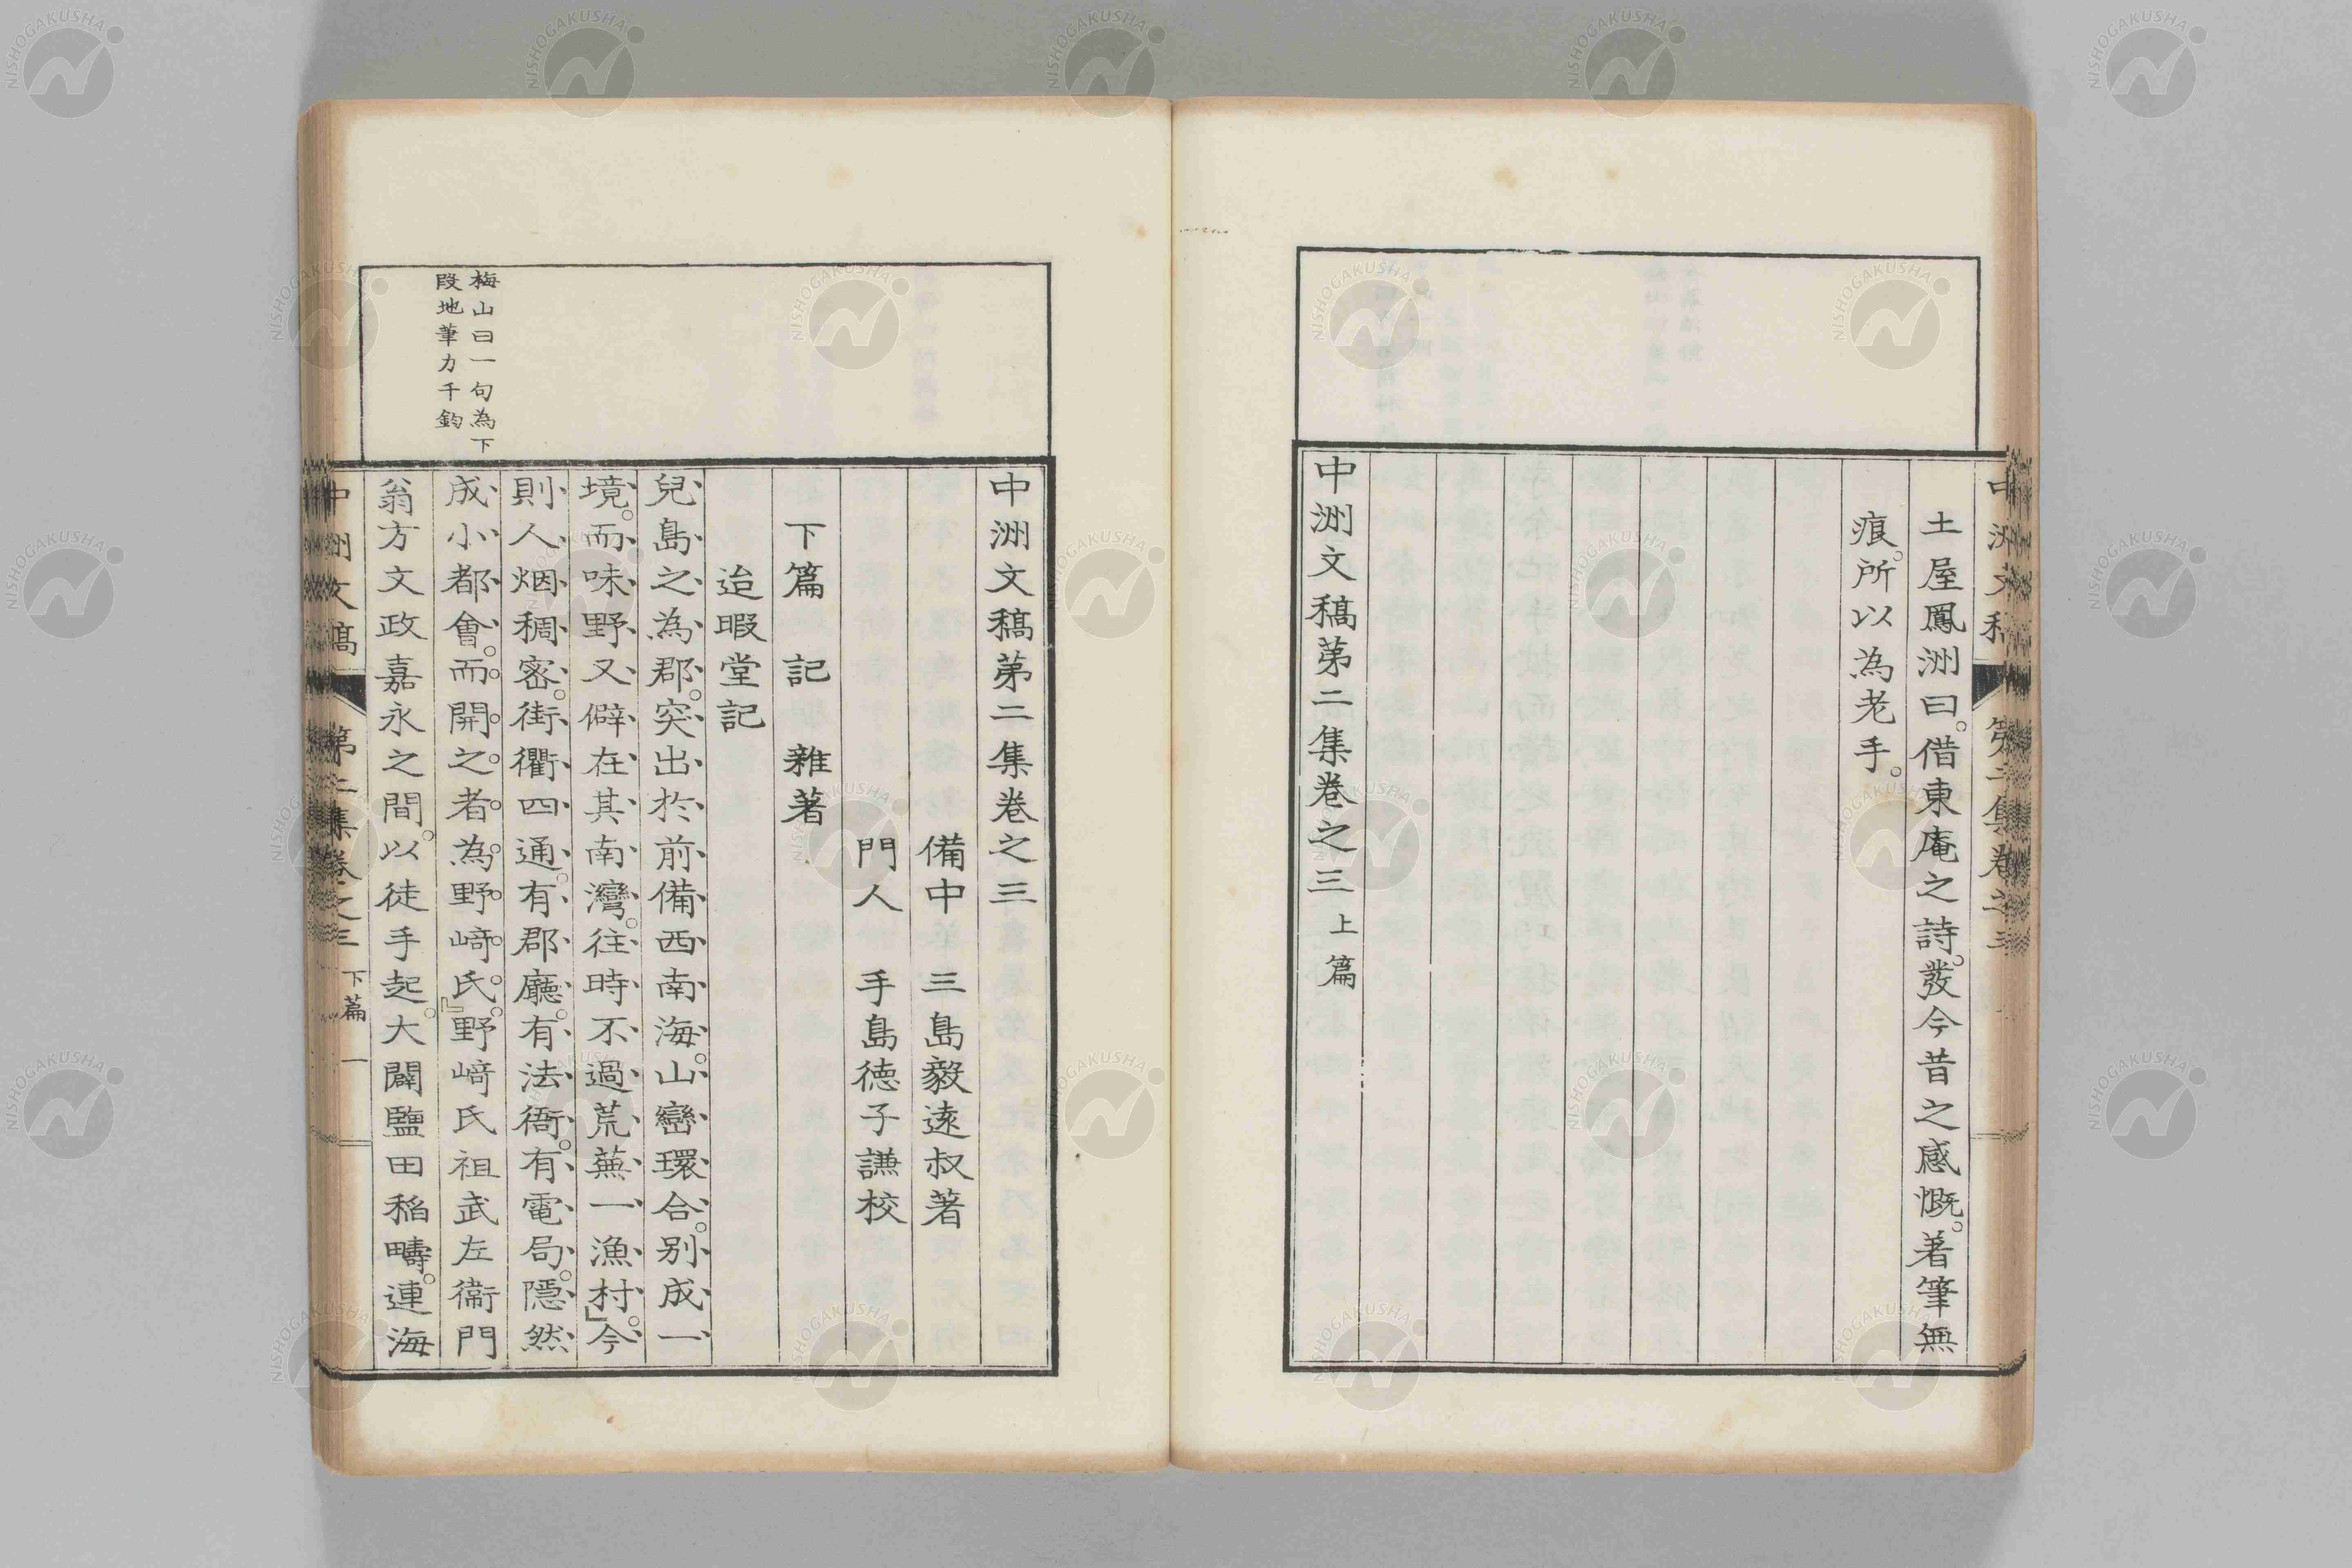 中洲文稿 第二集卷之三
土屋鳳洲曰。借東庵之詩。發今昔之感慨。著筆無
痕。所以為老手。
中洲文稿第二集卷之三上篇
中洲文稿第二集卷之三
備中 三島毅遠叔著
門人 手島徳子謙校
下篇 記 雜著
迨暇堂記
兒島之為郡。突出於前備西南海。山巒環合。別成一
境。而味野又僻在其南灣。往時不過荒蕪一漁村。」今
則人烟稠密。街衢四通。有郡廳。有法衙。有電局。隱然
成小都會。而開之者為野﨑氏。」野﨑氏祖武左衞門
翁方文政嘉永之間。以徒手起。大闢鹽田稻疇。連海
梅山曰一句為下
段地筆力千鈞
中洲文稿 第二集卷之三 下篇 一
NISHOGAKUSHA